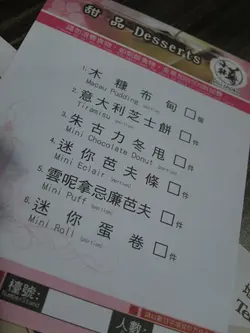 甜品—Desserts
1. 木糠布甸 □個
Macau Pudding (portion)
2. 意大利芝士餅 □件
Tiramisu (portion)
3. 朱古力冬甩 □件
Mini Chocolate Donut (portion)
4. 迷你芭夫條 □件
Mini Eclair (portion)
5. 雲呢拿忌廉芭夫 □件
Mini Puff (portion)
6. 迷你蛋卷 □件
Mini Roll (portion)
檯號:
人數: